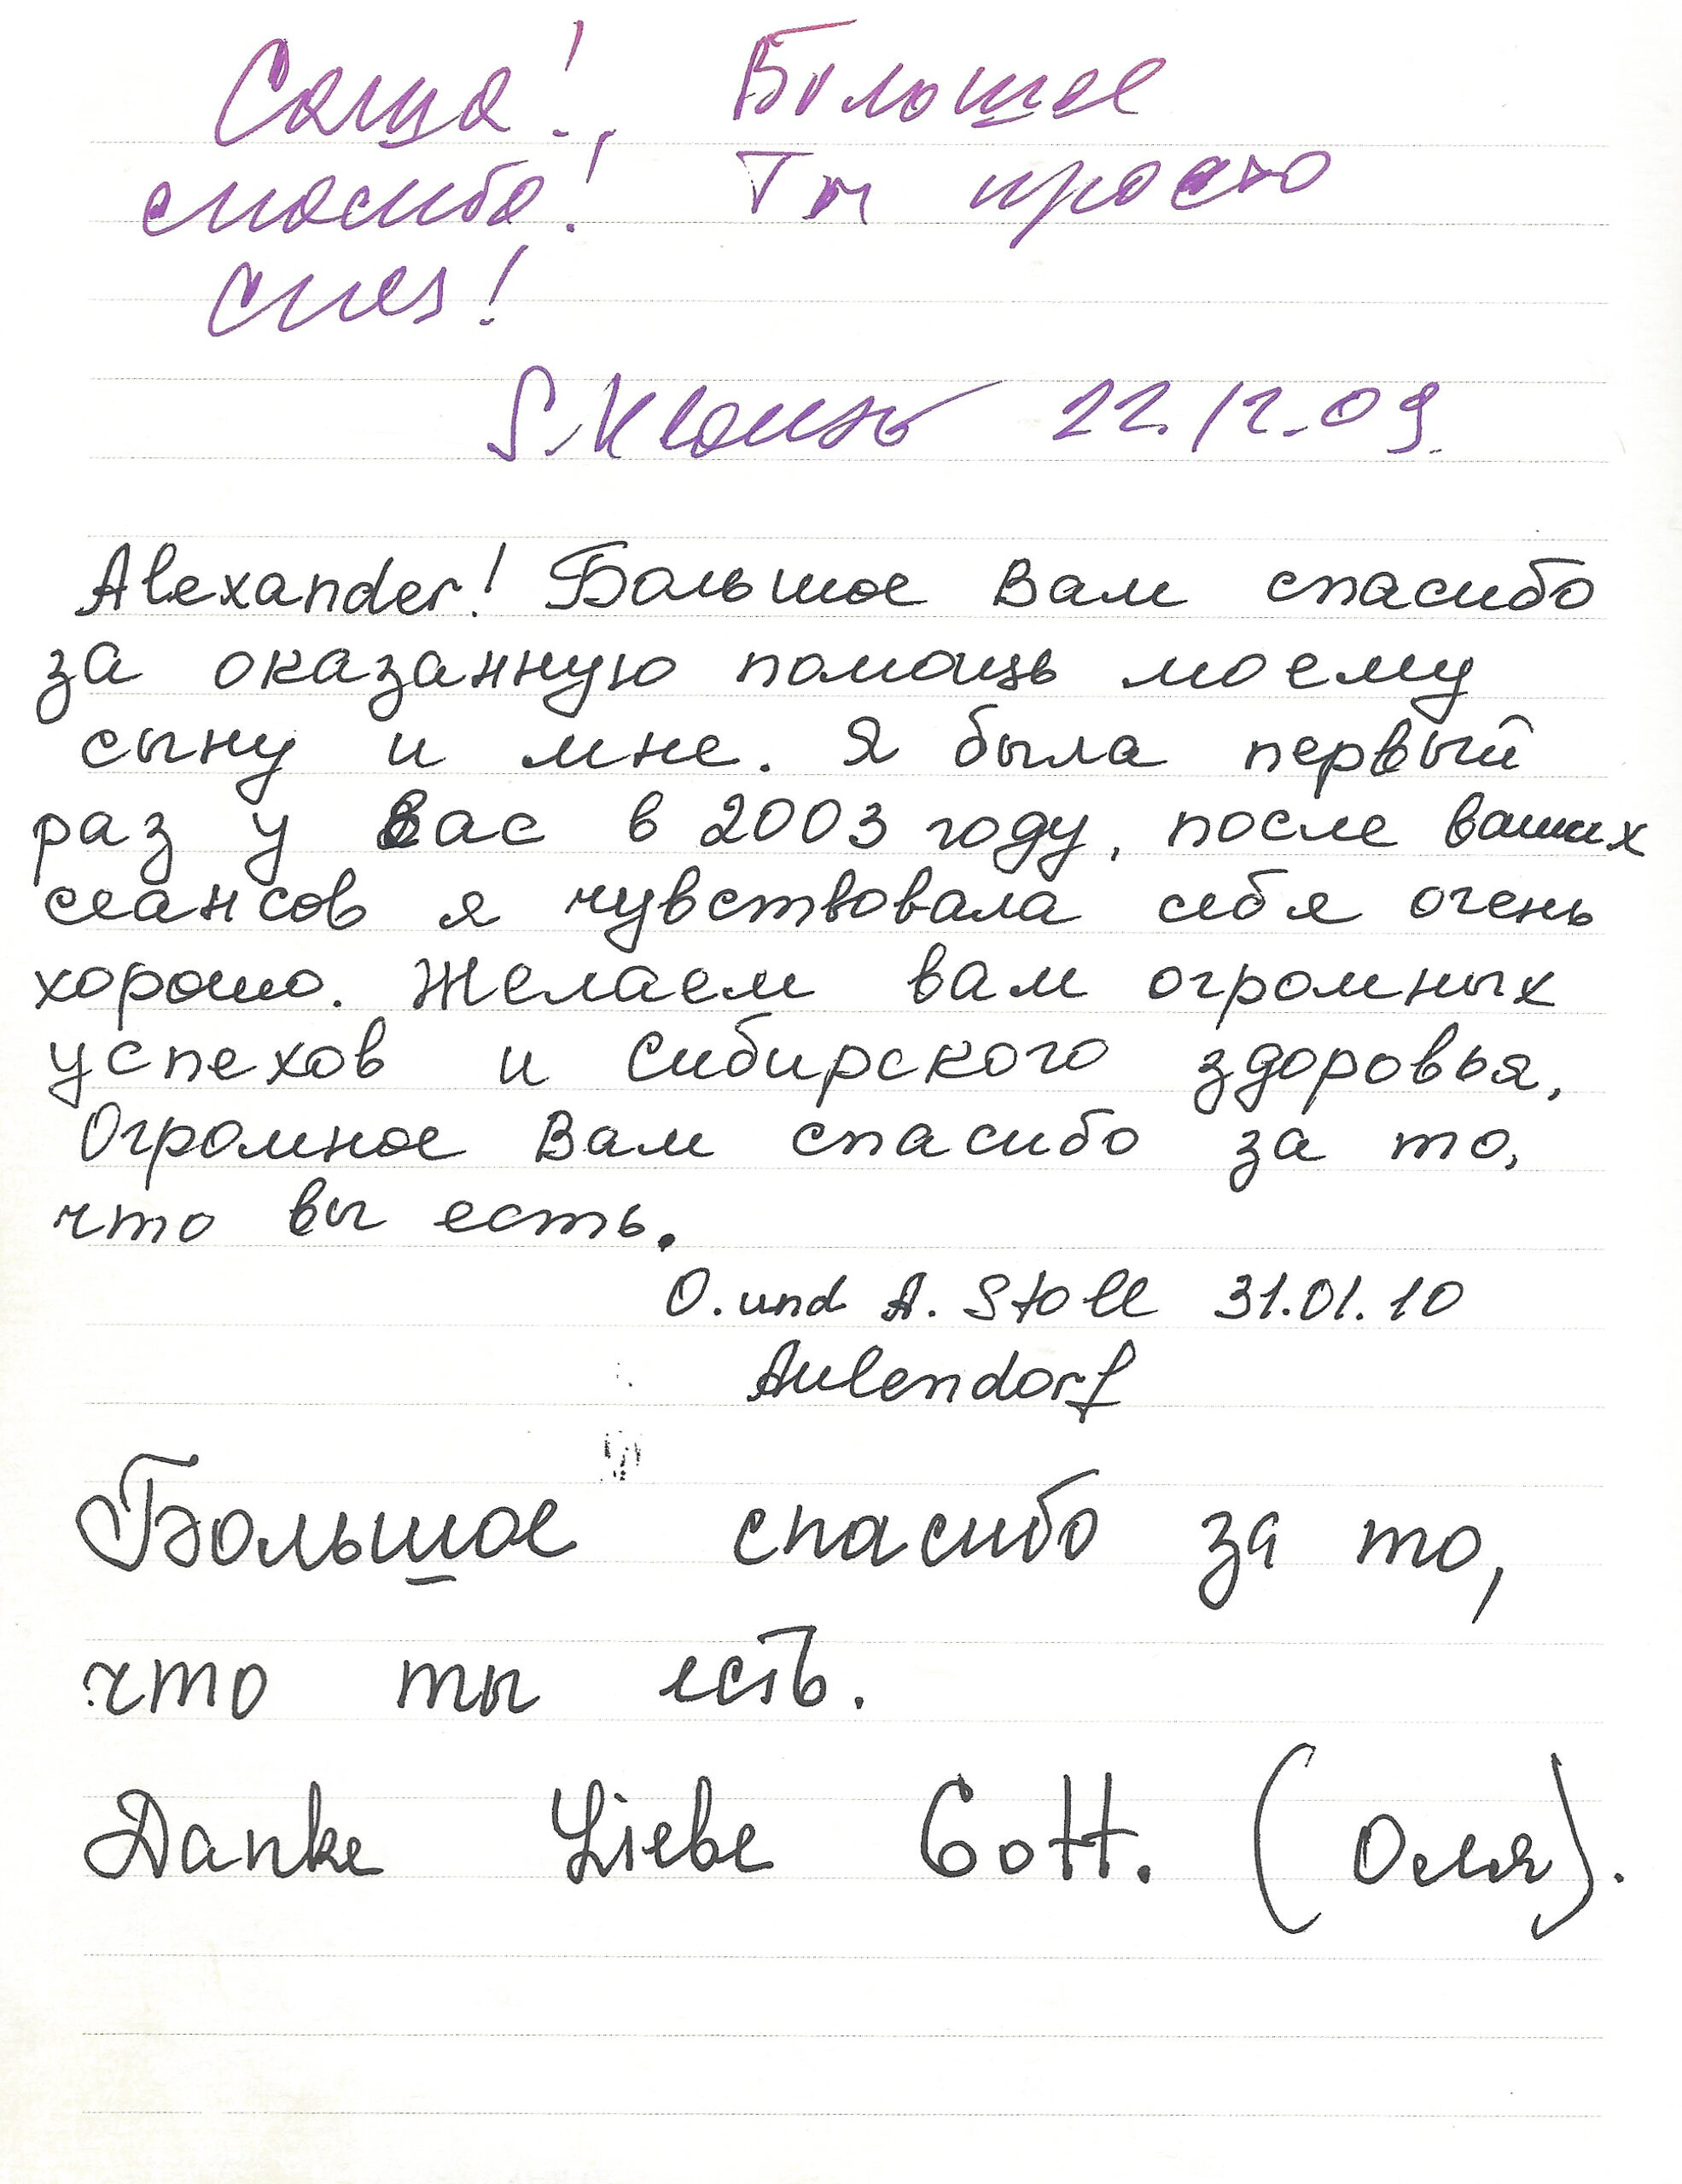 Саша! Большое
спасибо! Ты просто
S. 22.12.09.
Alexander! Большое Вам спасибо
за оказанную помощь моему
сыну и мне. Я была первый
раз у Вас в 2003 году, после ваших
сеансов я чувствовала себя очень
хорошо. Желаем вам огромных
успехов и Сибирского здоровья,
Огромное Вам спасибо за то,
что вы есть.
O. und A. Stoll 31.01.10
Aulendorf
Большое спасибо за то,
что ты есть.
Danke Liebe Gott. (Оля).